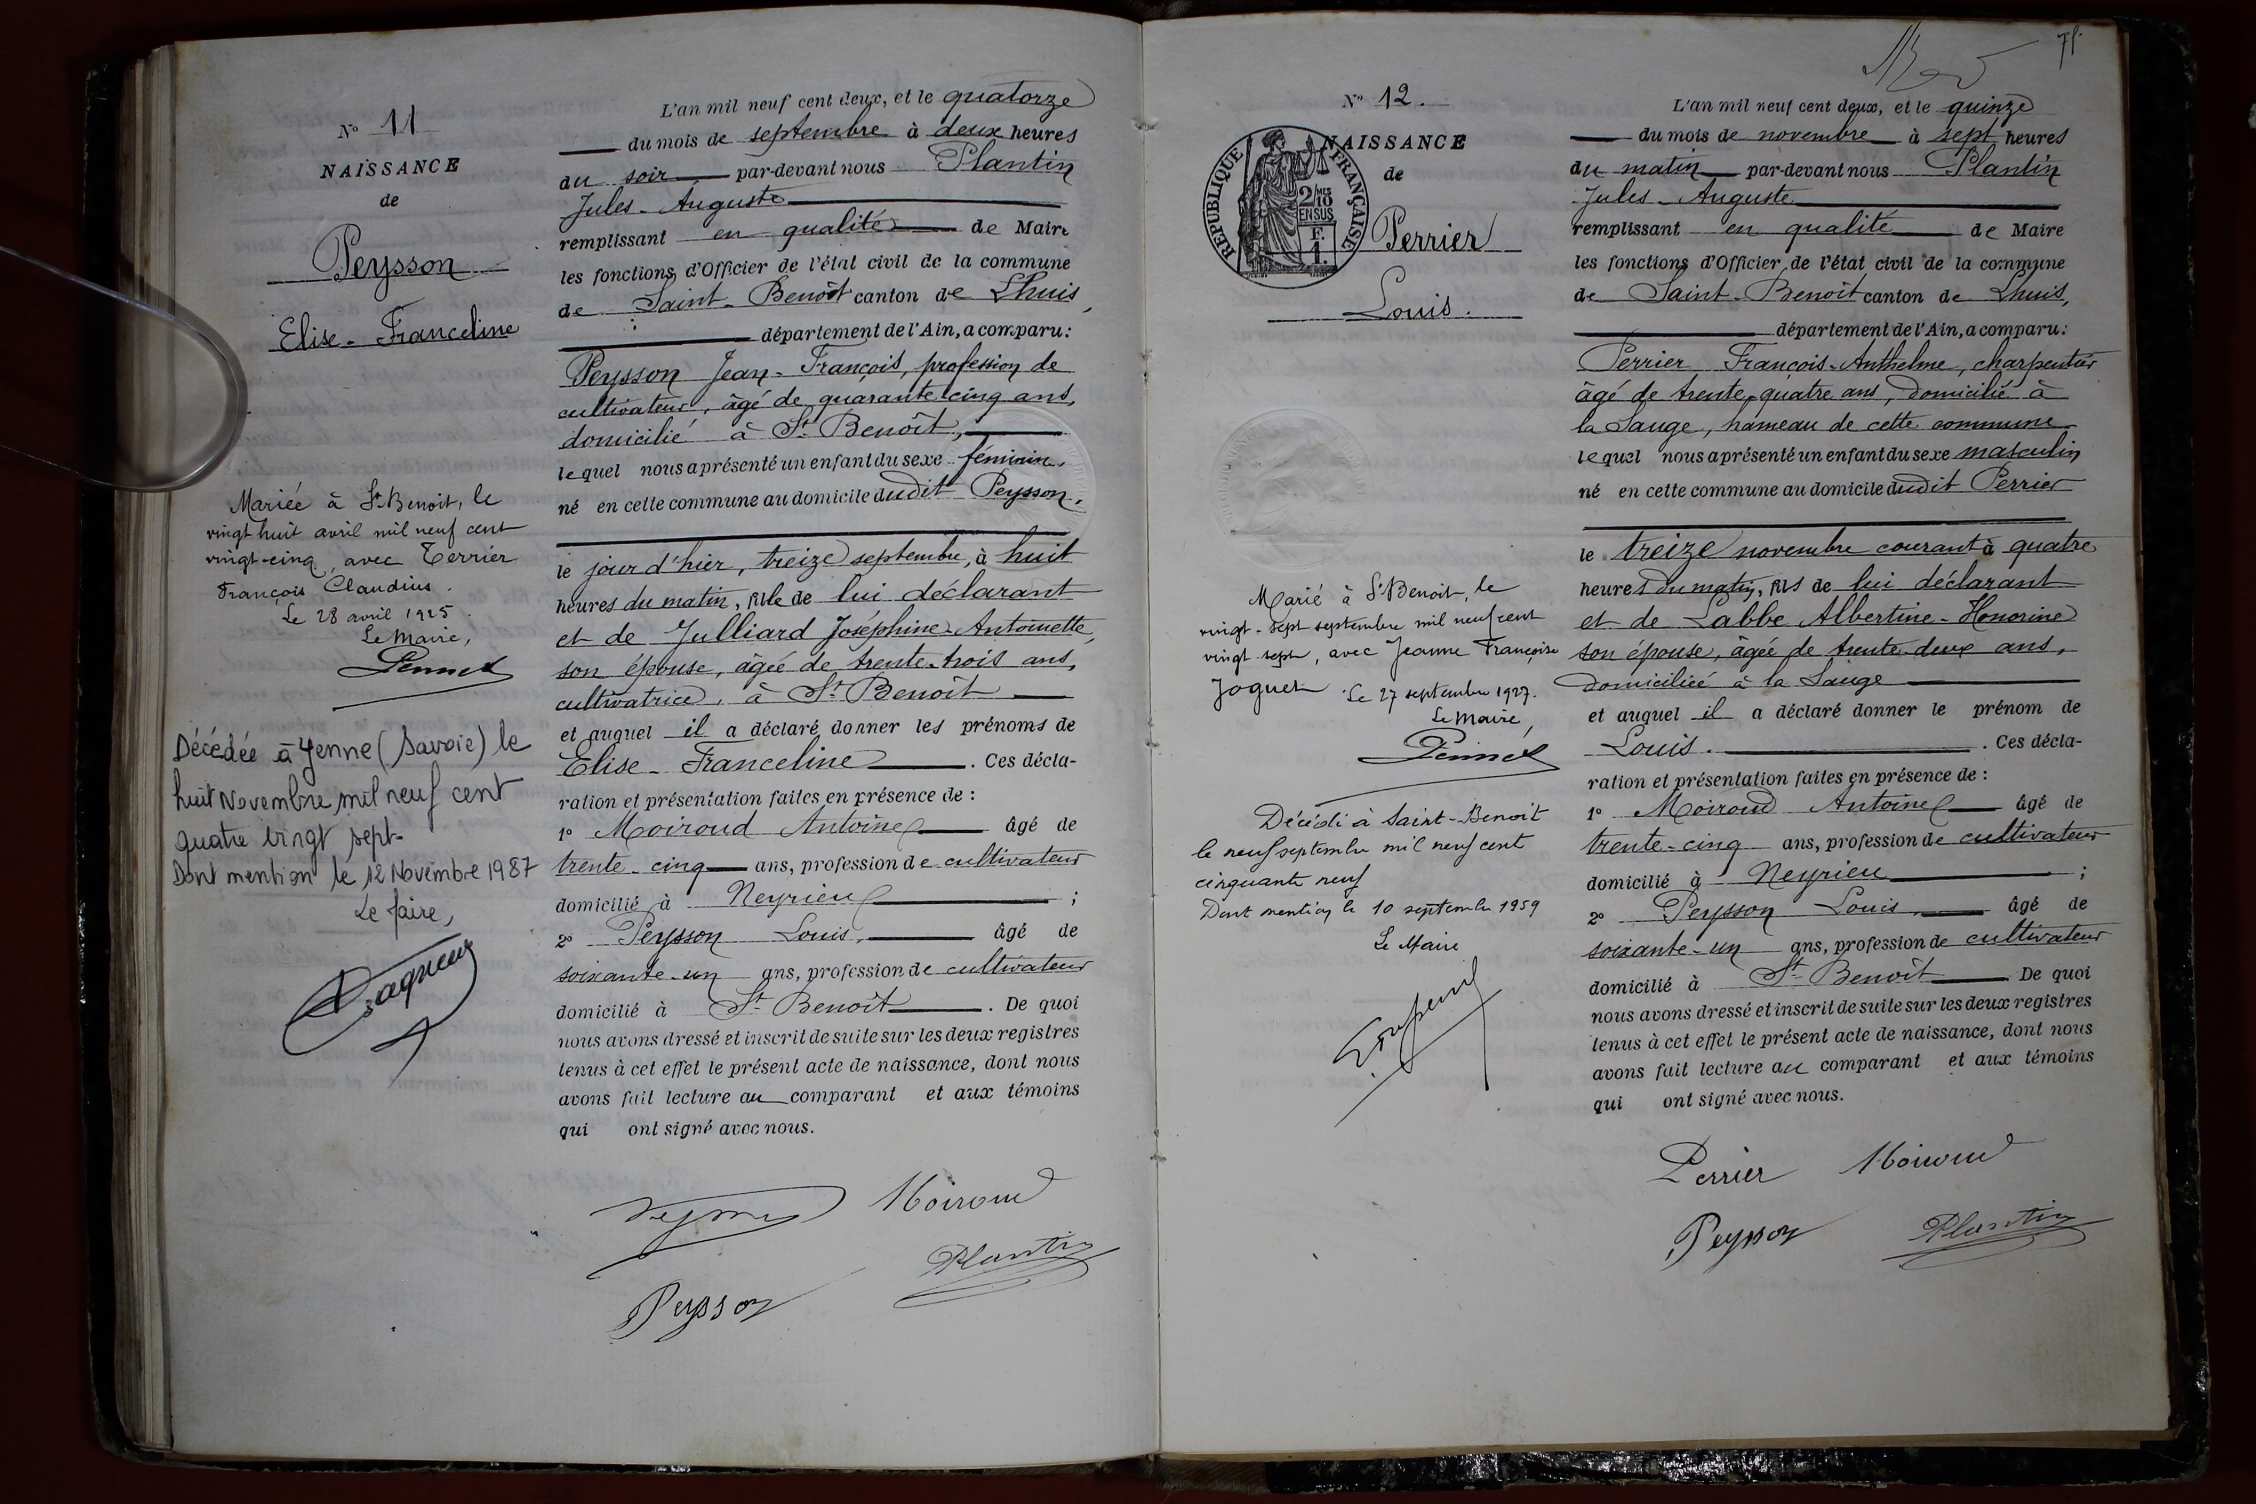 N° 11
NAISSANCE
de
Peysson
Elise-Franceline
Mariée à St Benoit, le
vingt huit avril mil neuf cent
vingt-cinq, avec Terrier
François Claudius.
Le 28 avril 1925.
Le Maire,
Décédée à Yenne (Savoie) le
huit Novembre mil neuf cent
quatre vingt sept-
Dont mention le 12 Novembre 1987
Le Maire,
L'an mil neuf cent deux, et le quatorze
du mois de septembre à deux heures
du soir par-devant nous Plantin
Jules-Auguste
remplissant en qualité de Maire
les fonctions d'Officier de l'état civil de la commune
de Saint-Benoît canton de Lhuis,
département de l'Ain, a comparu:
Peysson Jean-François, profession de
cultivateur, âgé de quarante-cinq ans,
domicilié à St Benoît,
lequel nous a présenté un enfant du sexe féminin,
né en cette commune au domicile dudit Peysson,
le jour d'hier, treize septembre, à huit
heures du matin, fille de lui déclarant
et de Julliard Joséphine-Antoinette,
son épouse, âgée de trente-trois ans,
cultivatrice, à St Benoît
et auquel il a déclaré donner les prénoms de
Elise-Franceline. Ces décla-
ration et présentation faites en présence de :
1° Moiroud Antoine âgé de
trente-cinq ans, profession de cultivateur
domicilié à Neyrieu ;
2° Peysson Louis, âgé de
soixante-un ans, profession de cultivateur
domicilié à St Benoît. De quoi
nous avons dressé et inscrit de suite sur les deux registres
tenus à cet effet le présent acte de naissance, dont nous
avons fait lecture au comparant et aux témoins
qui ont signé avec nous.
Moiroud
Plantin
Peysson
N° 12.
NAISSANCE
de
RÉPUBLIQUE FRANÇAISE
2/10 MES
EN SUS
F.
1.
Perrier
Louis.
Marié à St Benoit, le
vingt-sept septembre mil neuf cent
vingt sept, avec Jeanne Françoise
Joguet Le 27 septembre 1927.
Le Maire,
Décédé à Saint-Benoit
le neuf septembre mil neuf cent
cinquante neuf
Dont mention le 10 septembre 1959
Le Maire
L'an mil neuf cent deux, et le quinze
du mois de novembre à sept heures
du matin par-devant nous Plantin
Jules-Auguste
remplissant en qualité de Maire
les fonctions d'Officier de l'état civil de la commune
de Saint-Benoît canton de Lhuis,
département de l'Ain, a comparu:
Perrier François-Anthelme, charpentier
âgé de trente-quatre ans, domicilié à
la Sauge, hameau de cette commune
lequel nous a présenté un enfant du sexe masculin
né en cette commune au domicile dudit Perrier
le treize novembre courant à quatre
heures du matin, fils de lui déclarant
et de Labbe Albertine-Honorine
son épouse, âgée de trente-deux ans,
domiciliée à la Sauge
et auquel il a déclaré donner le prénom de
Louis. . Ces décla-
ration et présentation faites en présence de :
1° Moiroud Antoine âgé de
trente-cinq ans, profession de cultivateur
domicilié à Neyrieu ;
2° Peysson Louis, âgé de
soixante-un ans, profession de cultivateur
domicilié à St Benoît De quoi
nous avons dressé et inscrit de suite sur les deux registres
tenus à cet effet le présent acte de naissance, dont nous
avons fait lecture au comparant et aux témoins
qui ont signé avec nous.
Perrier Moiroud
Peysson Plantin